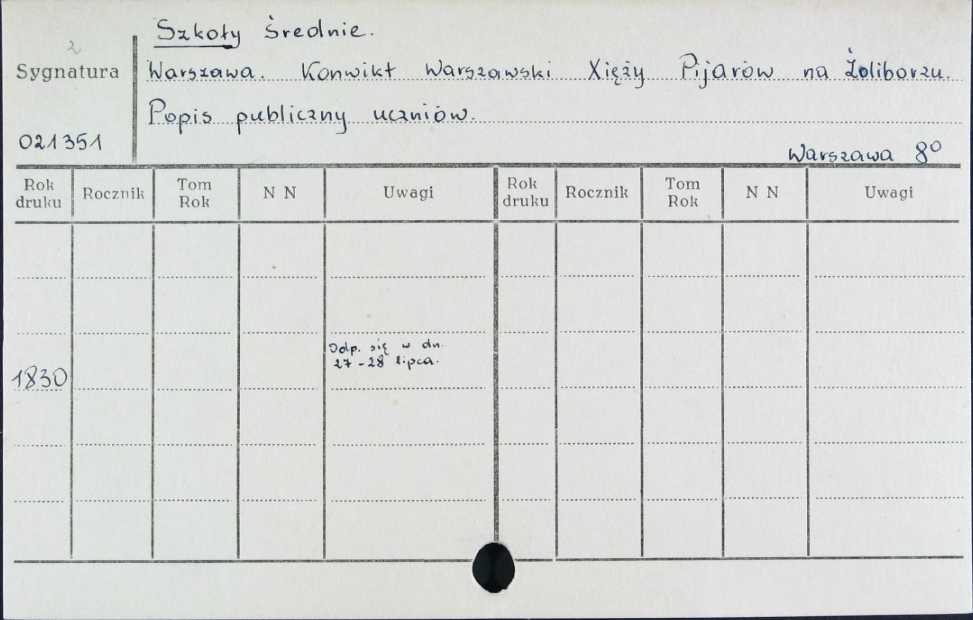 Szkoły Średnie.
2
Sygnatura
Warszawa. Konwikt Warszawski Xięży Pijarów na Żoliborzu.
Popis publiczny uczniów.
021351
Warszawa 8⁰
Rok druku Rocznik Tom Rok N N Uwagi Rok druku Rocznik Tom Rok N N Uwagi
Odp. się w dn.
27-28 lipca.
1830